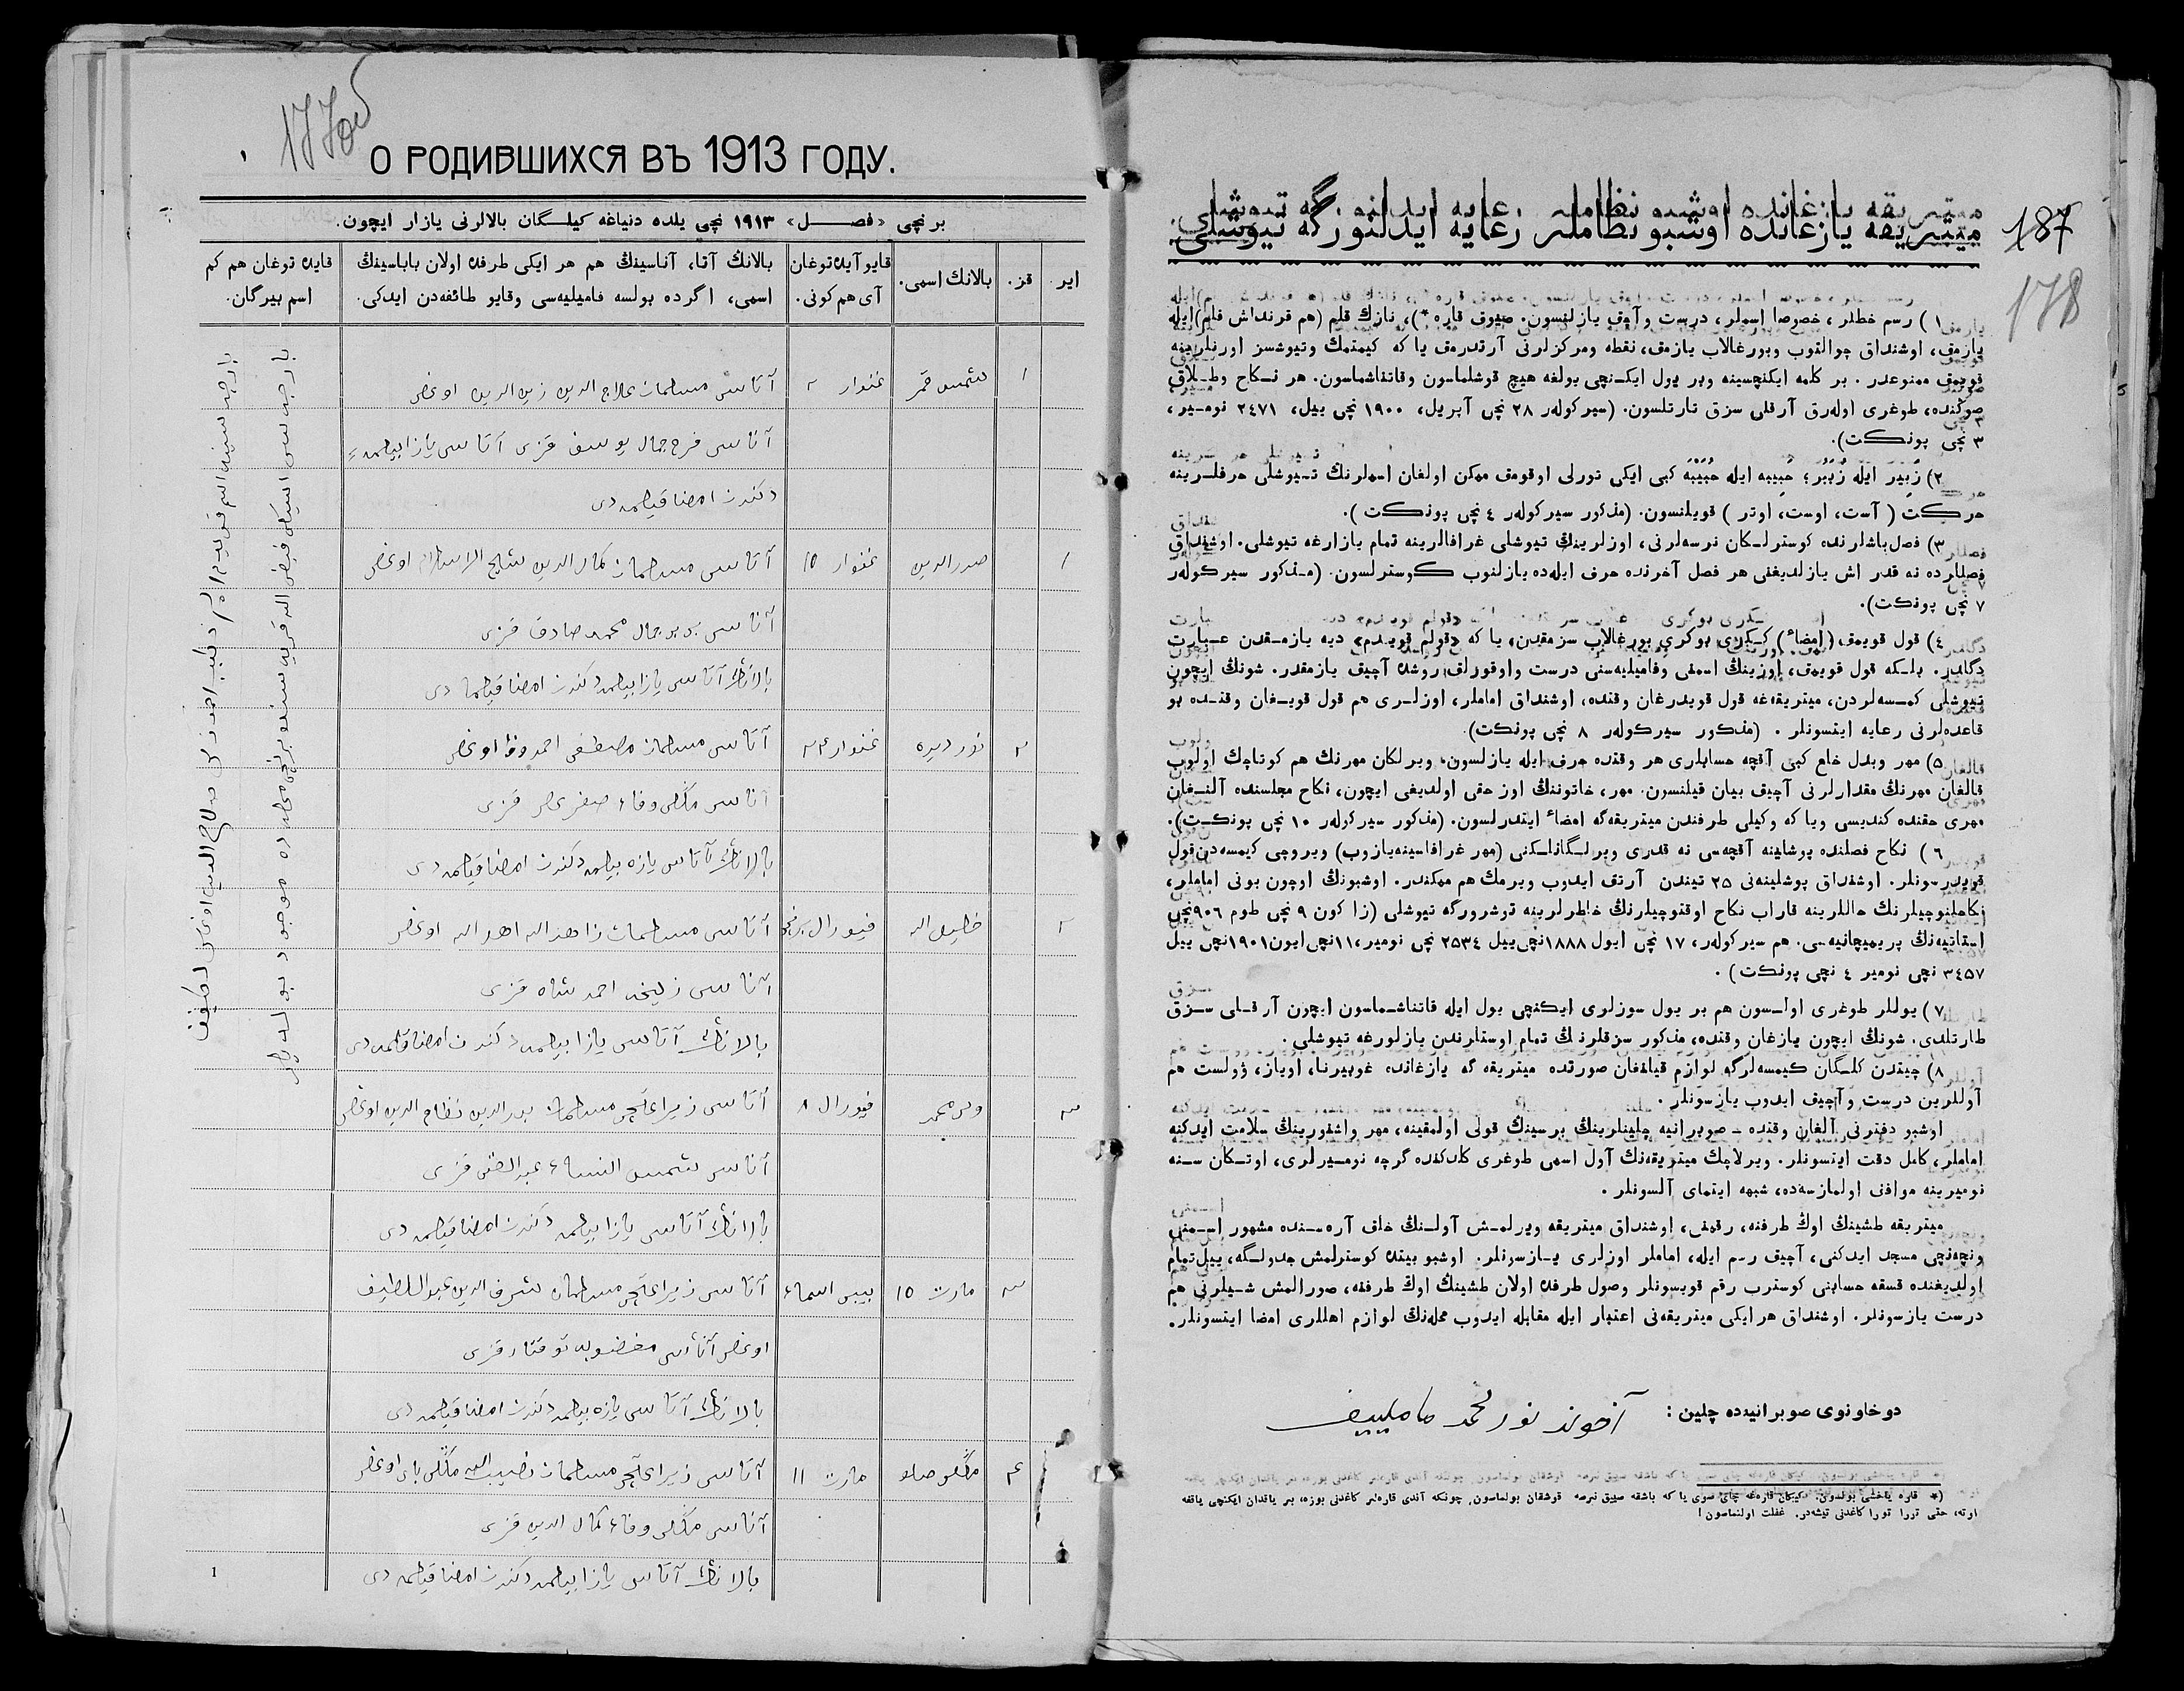 177об
О РОДИВШИХСЯ ВЪ 1913 ГОДУ.
برنچی «فصل» ۱۹۱۳ نچی یلده دنیاغه کیلگان بالالرنی یازار ایچون.
ایر.
قز.
بالانڭ اسمی.
قایو آیده توغان
آی هم کونی.
بالانڭ آتا، آناسینڭ هم هر ایکی طرفدن اولان باباسینڭ
اسمی، اگرده بولسه فامیلیه‌سی وقایو طائفه‌دن ایدکی.
قایده توغان هم کم
اسم بیرگان.
۱ شمس قمر غنوار ۲ آتاسی مسلمان علاج الدین زین الدین اوغلی
آناسی فرح جمال یوسف قزی آتاسی یازا بیلمه
دکندن امضا قیلمه‌دی
۱ صدرالدین غنوار ۱۵ آتاسی مسلمان کمال الدین شایخ الاسلام اوغلی
آناسی بدر جمال محمد صادق قزی
بالانڭ آتاسی یازا بیلمه‌دکندن امضا قیلمادی
۲ نور دیده غنوار ۲۴ آتاسی مسلمان مصطفی احمد وفا اوغلی
آناسی مڭلی وفاء صفر علی قزی
بالانڭ آتاسی یازه بیلمه‌دکندن امضا قیلمه‌دی
۲ خلیل الله فیورال برنچی آتاسی مسلمان زاهد الله اهد الله اوغلی
آناسی زلیخه احمد شاه قزی
بالانڭ آتاسی یازا بیلمه‌دکندن امضا قیلمه‌دی
۳ ولی محمد فیورال ۸ آتاسی زیراعتچی مسلمان بدرالدین نظام الدین اوغلی
آناسی شمس النساء عبدالغنی قزی
بالانڭ آتاسی یازا بیلمه‌دکندن امضا قیلمه‌دی
۳ مارت ۱۵ بیبی اسماء آتاسی زیراعتچی مسلمان شرف الدین عبداللطیف
اوغلی آناسی مغضوبه توقتار قزی
بالانڭ آتاسی یازه بیلمه‌دکندن امضا قیلمه‌دی
۴ مڭلو صلو مارت ۱۱ آتاسی زیراعتچی مسلمان نصیب الله مڭلی بای اوغلی
آناسی مڭلی وفاء کمال الدین قزی
بالانڭ آتاسی یازا بیلمه‌دکندن امضا قیلمه‌دی
1
187
178
میتریقه یازغانده اوشبو نظاملر رعایه ایدلنورگه تیوشلی.
۱) رسم خطلر، خصوصا اسملر، درست وآچیق یازلنسون. صیوق قاره *)، نازك قلم (هم قرنداش قلم) ایله
یازمق، اوشنداق چوالتوب وبورغالاب یازمق، نقطه ومرکزلرنی آرتدرمق یا که کیمتمك وتیوشسز اورنلرینه
قویمق ممنوعدر. بر کلمه ایکنچسینه وبر یول ایکنچی یولغه هیچ قوشلماسون وقاتناشماسون. هر نکاح وطلاق
صوڭنده، طوغری اوله‌رق آرقلی سزق تارتلسون. (سیرکولەر ۲۸ نچی آپریل، ۱۹۰۰ نچی ییل، ۲٤۷۱ نومیر،
۳ نچی پونکت).
۲) زَبِیر ایله زُبَیْر؛ حَبِیبه ایله حُبَیْبَه کبی ایکی تورلی اوقومق ممکن اولغان اسملرنڭ تیوشلی حرفلرینه
حرکت (آست، اوست، اوتر) قویلنسون. (مذکور سیرکولەر ٤ نچی پونکت).
۳) فصل باشلرنده کوسترلکان نرسه‌لرنی، اوزلرینڭ تیوشلی غرافالرینه تمام یازارغه تیوشلی. اوشنداق
فصللرده نه قدر اش یازلدیغنی هر فصل آخرنده حرف ایله‌ده یازلنوب کوسترلسون. (مذکور سیرکولەر
۷ نچی پونکت).
٤) قول قویمق (امضاء) کیکری بوکری بورغالاب سزمقدن، یا که «قولم قویدم» دیه یازمقدن عبارت
دگلدر. بلکه قول قویمق، اوزینڭ اسمنی وفامیلیه‌سنی درست واوقورلق روشده آچیق یازمقدر. شونڭ ایچون
تیوشلی کمسه‌لردن، میتریقه‌غه قول قویدرغان وقتده، اوشنداق اماملر، اوزلری هم قول قویغان وقتده بو
قاعده‌لرنی رعایه ایتسونلر. (مذکور سیرکولەر ۸ نچی پونکت).
۵) مهر وبدل خلع کبی آقچه حسابلری هر وقتده حرف ایله یازلسون. ویرلکان مهرنڭ هم کوتاچك اولوب
قالغان مهرنڭ مقدارلرنی آچیق بیان قیلنسون. مهر، خاتوننڭ اوز حقی اولدیغی ایچون، نکاح مجلسنده آلنغان
مهری حقنده کندیسی ویا که وکیلی طرفندن میتریقه‌گه امضاء ایتدرلسون. (مذکور سیرکولەر ۱۰ نچی پونکت).
٦) نکاح فصلنده پوشلینه آقچه‌سی نه قدری ویرلگانلکنی (مهر غرافاسینه یازوب) ویروچی کیمسه‌دن قول
قویدرسونلر. اوشنداق پوشلینه‌نی ۲۵ تیندن آرتق ایدوب ویرمك هم ممکندر. اوشبونڭ اوچون بونی اماملر،
نکاحلنوچیلرنڭ حاللرینه قاراب نکاح اوقتوچیلرنڭ خاطرلرینه توشرورگه تیوشلی (زاکون ۹ نچی طوم ۹۰٦ نچی
استاتیه‌نڭ پریمیچانیه‌سی. هم سیرکولەر، ۱۷ نچی ایول ۱۸۸۸ نچی ییل ۲۵۳٤ نچی نومیر، ۱۱ نچی ایون ۱۹۰۱ نچی ییل
۳٤۵۷ نچی نومیر ٤ نچی پونکت).
۷) یوللر طوغری اولسون هم بر یول سوزلری ایکنچی یول ایله قاتناشماسون ایچون آرقلی سزق
طارتلدی. شونڭ ایچون یازغان وقتده، مذکور سزقلرنڭ تمام اوستلرندن یازلورغه تیوشلی.
۸) چیتدن کلگان کیمسه‌لرگه لوازم قیالنغان صورتده میتریقه گه یازغانده غوبیرنا، اویاز، وولست هم
آوللرین درست وآچیق ایدوب یازسونلر.
اوشبو دفترنی آلغان وقتده - صوبرانیه چلینلرینڭ برسینڭ قولی اولمقینه، مهر واشنورینڭ سلامت ایدکنه
اماملر، کامل دقت ایتسونلر. ویرلاچك میتریقه‌نڭ آول اسمی طوغری کلدکده گرچه نومیرلری، اوتکان سنه
نومیرینه موافق اولمازسه‌ده، شبهه ایتمای آلسونلر.
میتریقه طشینڭ اوڭ طرفنه، رقمنی، اوشنداق میتریقه ویرلمش آولنڭ خلق آره‌سنده مشهور اسمنی
ونچه‌نچی مسجد ایدکنی، آچیق رسم ایله، اماملر اوزلری یازسونلر. اوشبو بیتده کوسترلمش جدولگه، ییل تمام
اولدیغنده قسقه حسابنی کوسترب رقم قویسونلر وصول طرفده اولان طشینڭ اوڭ طرفنه، صورالمش شیلرنی هم
درست یازسونلر. اوشنداق هر ایکی میتریقه‌نی اعتبار ایله مقابله ایدوب محله‌نڭ لوازم اهللری امضا ایتسونلر.
دوخاونوی صوبرانیه‌ده چلین: آخوند نور محمد ماملییف
*) قاره یاخشی بولسون. کیپکان قاره‌غه چای صوی یا که باشقه صییق نرسه قوشقان بولماسون. چونکه آندی قاره‌لر کاغدنی بوزه، بر یاقدان ایکنچی یاقغه
اوته، حتی تورا تورا کاغدنی تیشه‌در. غفلت اولنماسون!